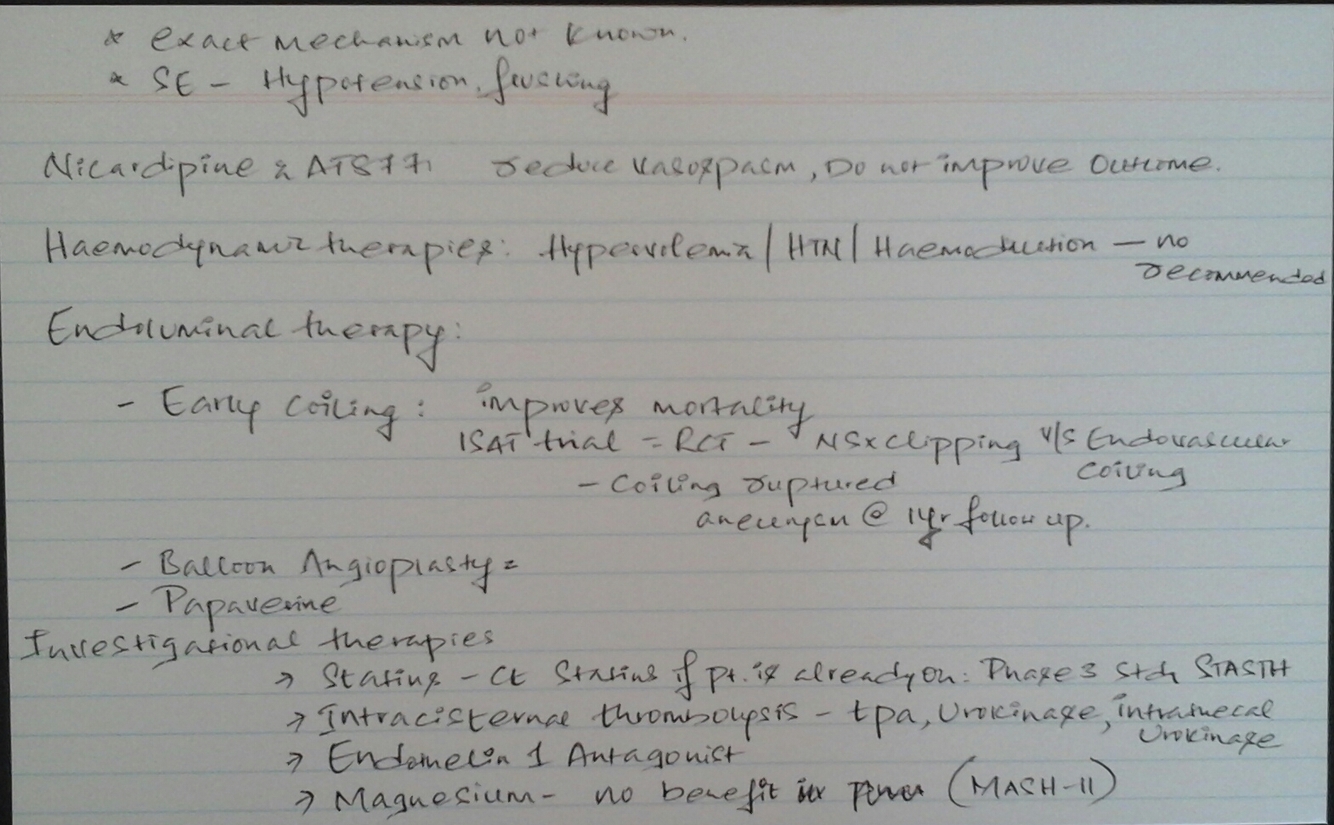 * exact mechanism not known.
* SE - Hypotension, flushing
Nicardipine & AT877 reduce vasospasm, Do not improve Outcome.
Haemodynamic therapies: Hypervolemia / HTN / Haemodilution — no recommended
Endoluminal therapy:
- Early Coiling: improves mortality
ISAT trial = RCT - NSx clipping v/s Endovascular Coiling
- Coiling ruptured
aneurysm @ 1yr follow up.
- Balloon Angioplasty =
- Papaverine
Investigational therapies
→ Statins - Ct Statins if pt. is already on: Phase 3 STASH
→ Intracisternal thrombolysis - tpa, Urokinase, intrathecal Urokinase
→ Endothelin 1 Antagonist
→ Magnesium - no benefit (MASH-II)